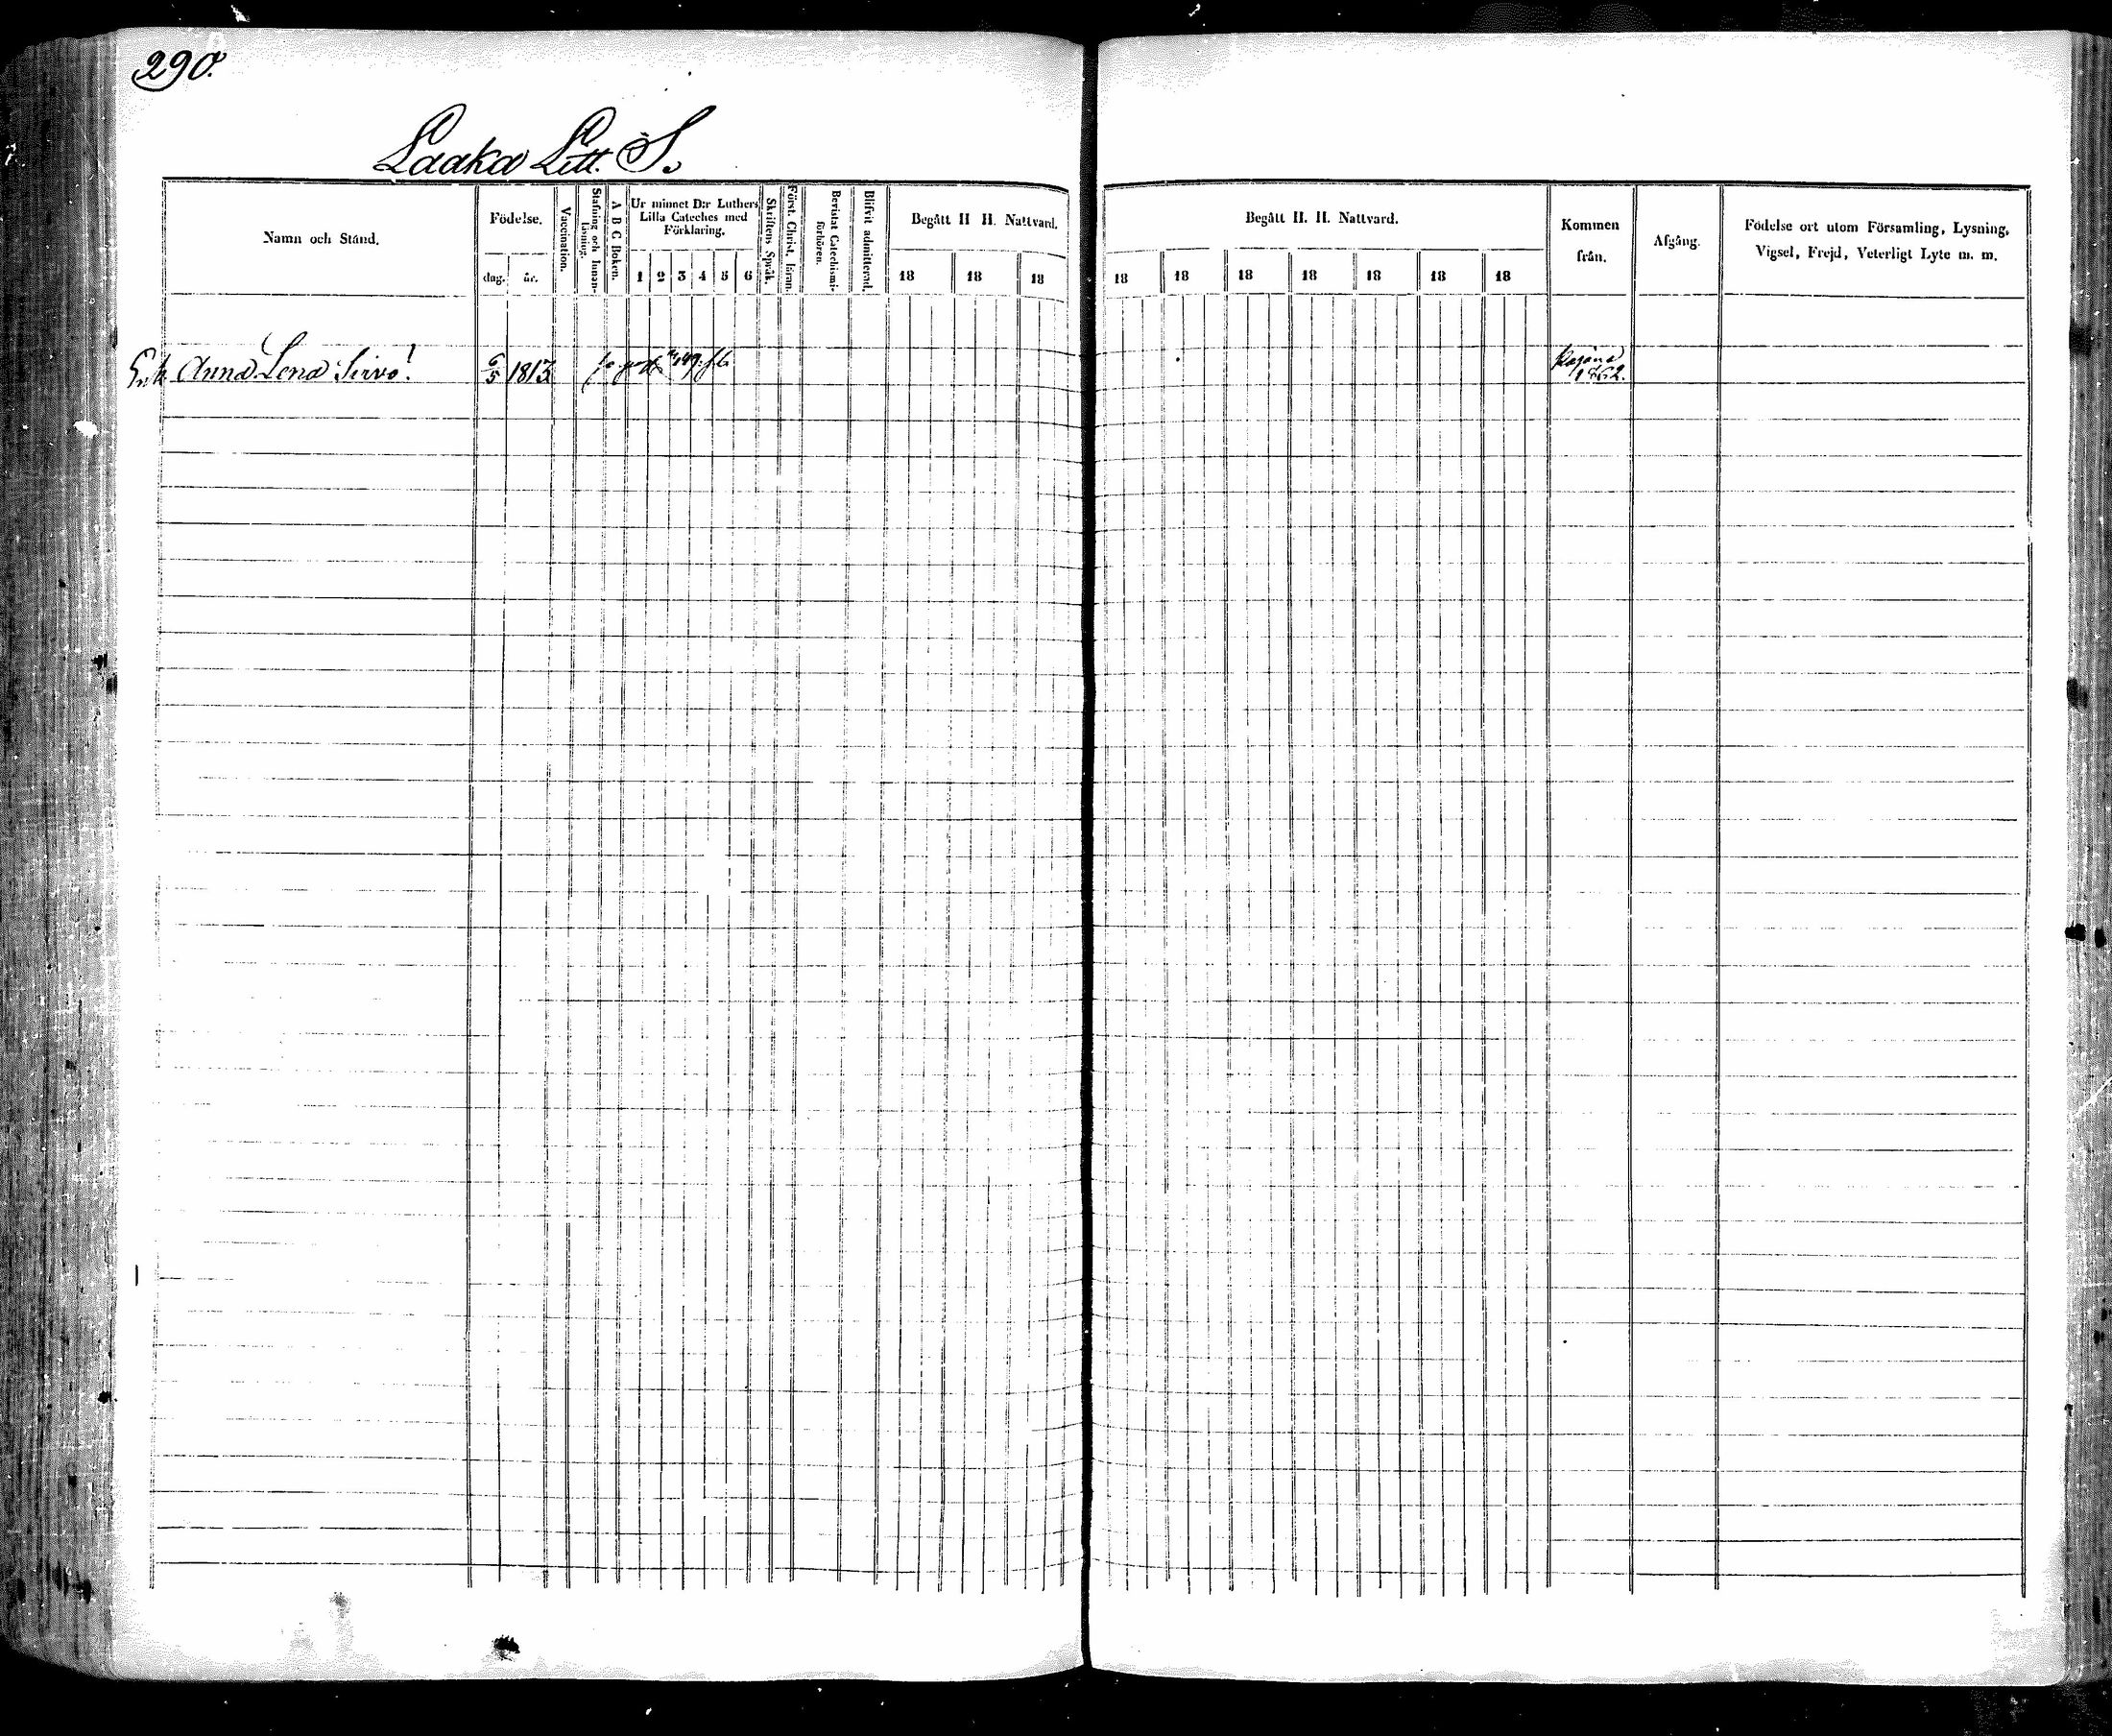 290.
Laaka Litt. S.
Namn och Stånd.
Födelse.
dag.
år.
Vaccination.
Stafning och Innan-
läsning.
A B C Boken.
Ur minnet D:r Luthers
Lilla Cateches med
Förklaring.
1 2 3 4 5 6
Skriftens Språk.
Först. Christ. läran.
Bevistat Catechismi-
förhören.
Blifvit admitterad.
Begått H H. Nattvard.
18 18 18
Begått H. H. Nattvard.
18 18 18 18 18 18 18
Kommen
från.
Afgång.
Födelse ort utom Församling, Lysning,
Vigsel, Frejd, Veterligt Lyte m. m.
Enk. Anna Lena Sirvo!
6/5 1813
Kajana
1862.